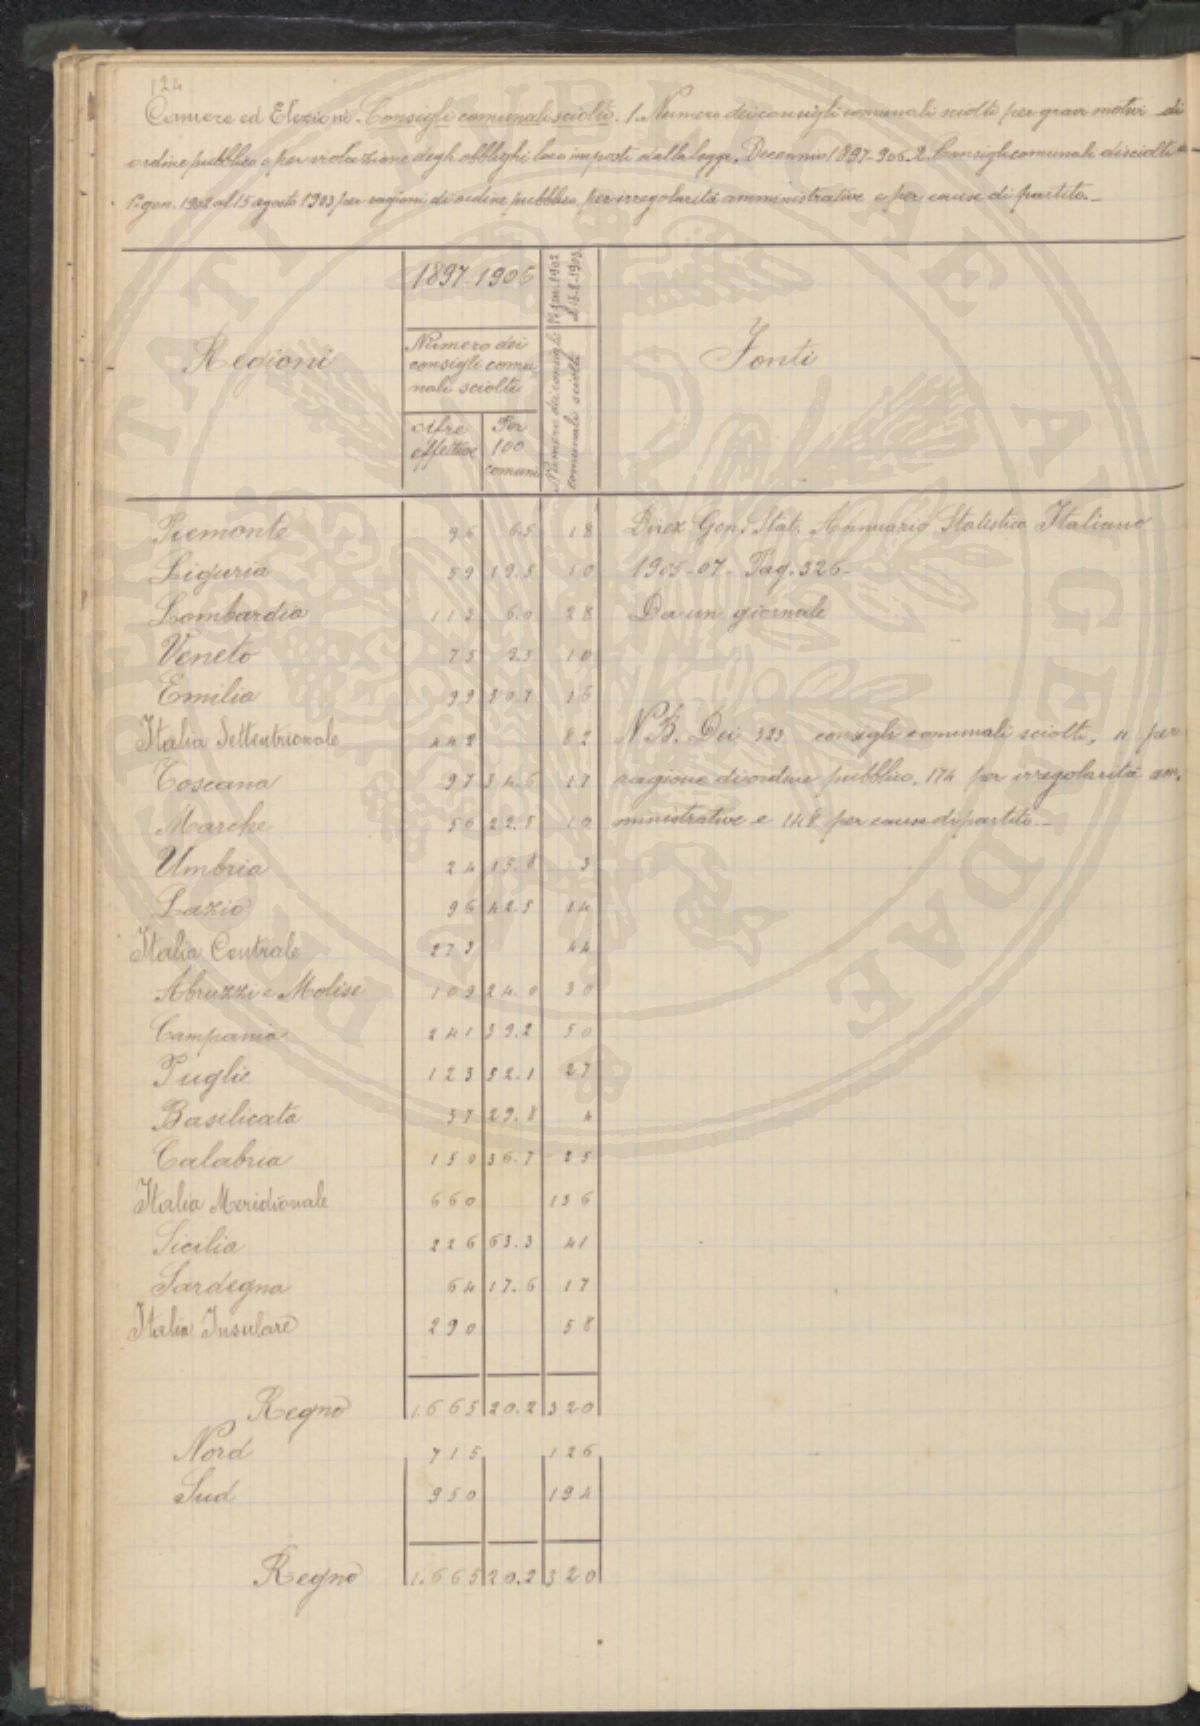 124
Camere ed Elezioni - Consigli comunali sciolti. 1. Numero dei consigli comunali sciolti per gravi motivi di
ordine pubblico o per violazione degli obblighi loro imposti dalla legge. Decennio 1897-906. 2. Consigli comunali disciolti
1º gen. 1902 al 15 agosto 1903 per ragioni di ordine pubblico, per irregolarità amministrative e per cause di partito. -
Regioni
1897-1906
Numero dei
consigli comu
nali sciolti
cifre
effettive
Per
100
comuni
1º gen. 1902
al 15-8-1903
Numero dei consigli
comunali sciolti
Fonti
Piemonte 96 6.5 18 Direz. Gen. Stat. Annuario Statistico Italiano
Liguria 59 19.5 10 1905-07- Pag. 326-
Lombardia 113 6.0 28 Da un giornale
Veneto 75 9.5 10
Emilia 99 30.7 16
Italia Settentrionale 442 82 N.B. Dei 323 consigli comunali sciolti, per
Toscana 97 34.6 17 ragione di ordine pubblico, 174 per irregolarità am-
Marche 56 22.5 10 ministrative e 148 per cause di partito. -
Umbria 24 15.8 3
Lazio 96 42.5 14
Italia Centrale 273 44
Abruzzi e Molise 109 24.0 30
Campania 241 39.2 50
Puglie 123 52.1 27
Basilicata 37 29.8 4
Calabria 150 36.7 25
Italia Meridionale 660 136
Sicilia 226 63.3 41
Sardegna 64 17.6 17
Italia Insulare 290 58
Regno 1.665 20.2 320
Nord 715 126
Sud 950 194
Regno 1.665 20.2 320